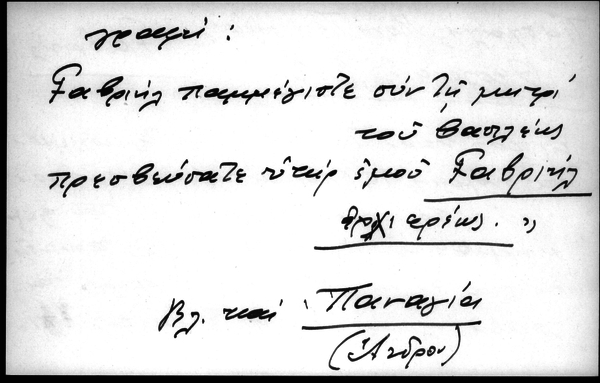 γραφή :
Γαβριήλ παμμέγιστε σύν τῇ μητρί
τοῦ βασιλέως
πρεσβεύσατε ὑπέρ ἐμοῦ Γαβριήλ
ἀρχιερέως. »
Βλ. καί Παναγία
(Ἄνδρου)